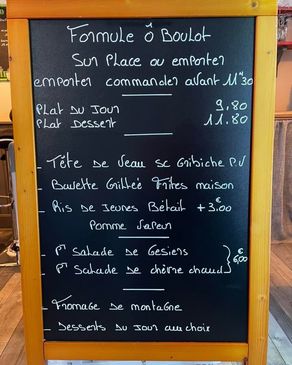 Formule Ô Boulot
Sur Place ou emporter
emporter commander avant 11H30
Plat du Jour 9,80
Plat Dessert 11.80
_ Tête de Veau sc Gribiche P.V
_ Bavette Grillée Frites maison
_ Ris de Jeunes Bétail +3€00
Pomme Vapeur
_ Pte Salade de Gesiers
_ Pte Salade de chèvre chaud } 6€00
_ Fromage de montagne
_ Desserts du Jour au choix